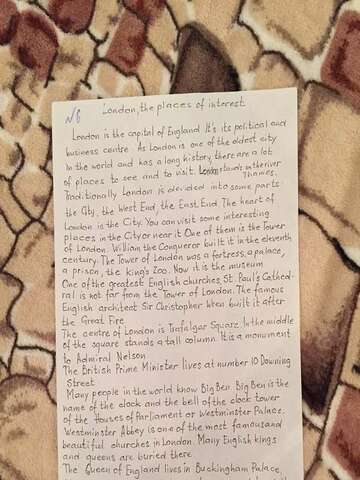 №6
London, the places of interest
London is the capital of England. It's its political and
business centre. As London is one of the oldest city
in the world and has a long history, there are a lot
of places to see and to visit. London stands on the river
Thames.
Traditionally London is devided into some parts:
the City, the West End, the East End. The heart of
London is the City. You can visit some interesting
places in the City or near it. One of them is the Tower
of London. William the Conqueror built it in the eleventh
century. The Tower of London was a fortress, a palace,
a prison, the king's Zoo. Now it is the museum
One of the greatest English churches, St. Paul's Cathed-
ral is not far from the Tower of London. The famous
English architect Sir Christopher Wren built it after
the Great Fire
The centre of London is Trafalgar Square. In the middle
of the square stands a tall column. It is a monument
to Admiral Nelson
The British Prime Minister lives at number 10 Downing
Street
Many people in the world know Big Ben. Big Ben is the
name of the clock and the bell of the clock tower
of the Houses of Parliament or Westminster Palace.
Westminster Abbey is one of the most famous and
beautiful churches in London. Many English kings
and queens are buried there
The Queen of England lives in Buckingham Palace,